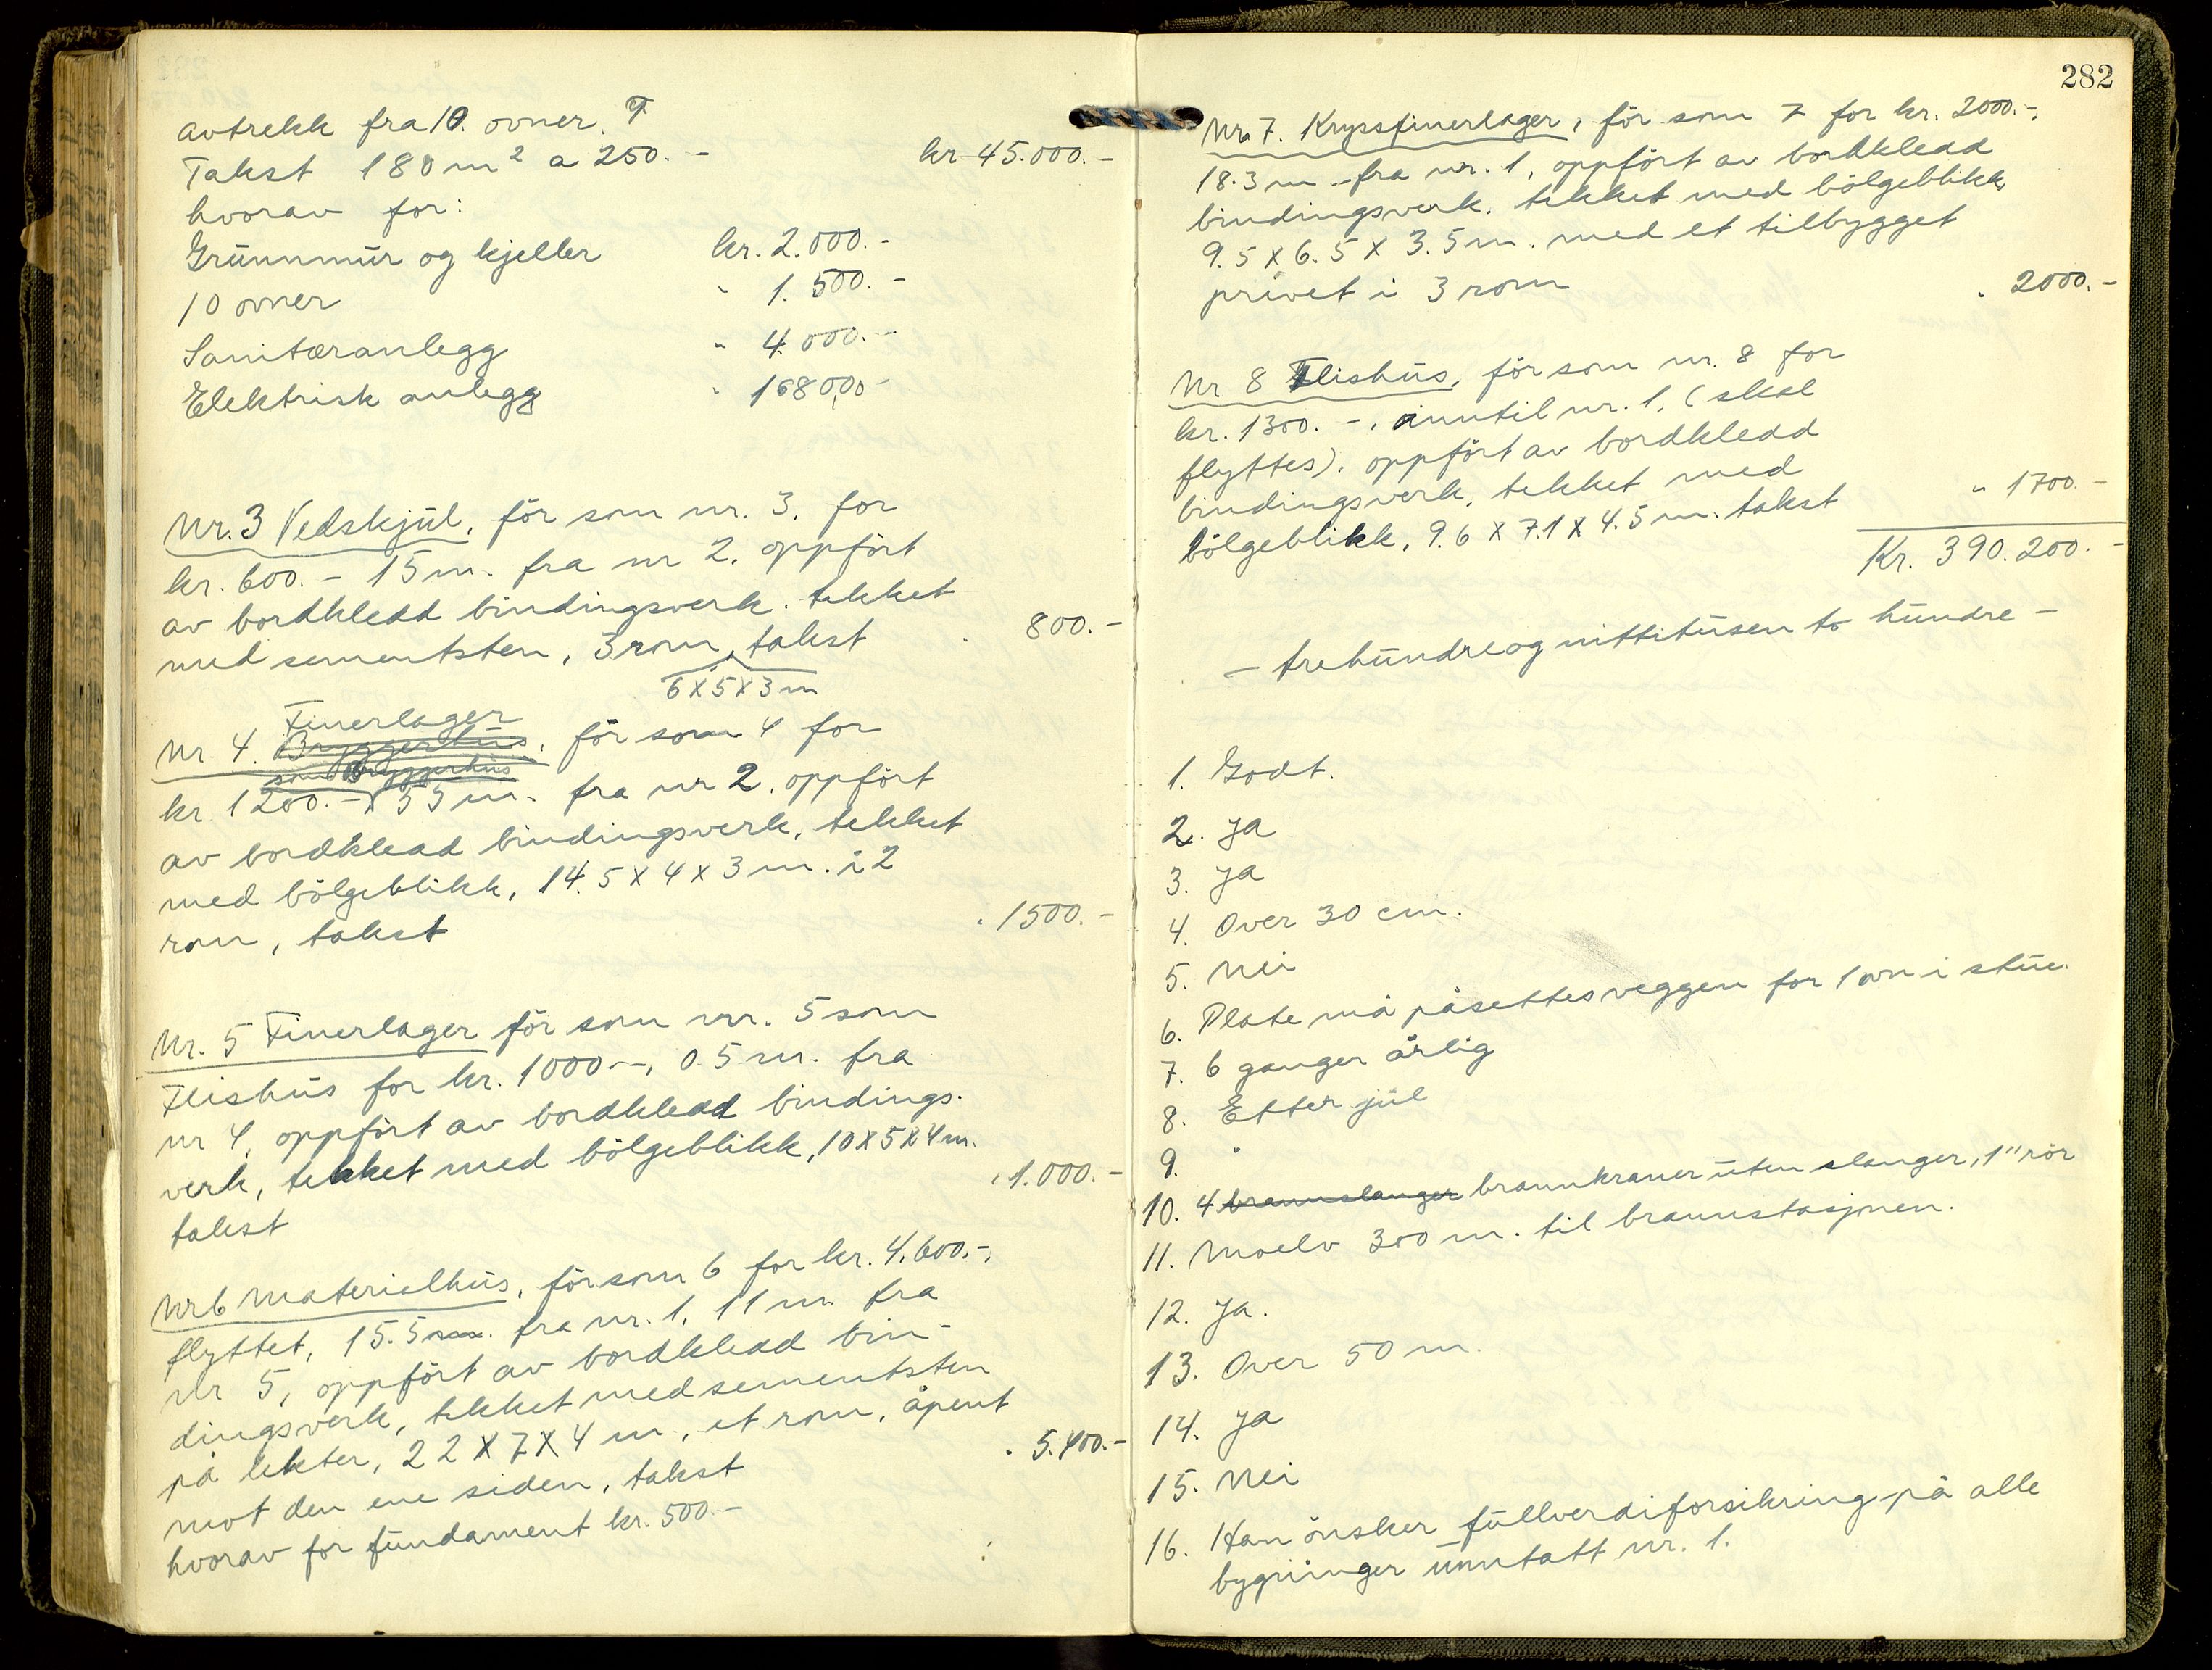 avtrekk fra 10. ovner.
Takst 180 m² a 250.- kr 45.000.-
hvorav for:
Grunnmur og kjeller kr. 2.000.-
10 ovner " 1.500.-
Sanitæranlegg " 4.000.-
Elektrisk anlegg " 1680,00-
Nr. 3 Vedskjul, för som nr. 3. for
kr. 600.- 15 m. fra nr 2. oppfört
av bordkledd bindingsverk. tekket
med sementsten, 3 rom, takst " 800.-
6 x 5 x 3 m
Finerlager
Nr 4. Bryggerhus, för som 4 for
som Bryggerhus
kr 1200.- x 55 m. fra nr 2. oppfört
av bordkledd bindingsverk, tekket
med bölgeblikk, 14.5 x 4 x 3 m. i 2
rom, takst " 1500.-
Nr. 5 Finerlager för som nr. 5 som
Flishus for kr. 1000.-, 0.5 m. fra
nr 4, oppfört av bordkledd bindings-
verk, tekket med bölgeblikk, 10 x 5 x 4 m.
takst " 1.000.-
Nr 6 Materialhus, för som 6 for kr. 4.600.-,
flyttet, 15.5 m. fra nr. 1, 11 m fra
nr 5, oppfört av bordkledd bin-
dingsverk, tekket med sementsten
på lekter, 22 x 7 x 4 m., et rom, åpent
mot den ene siden, takst " 5.400.-
hvorav for fundament kr. 500.-
282
Nr. 7. Kryssfinerlager, för som 7 for kr. 2000.-,
18.3 m. fra nr. 1, oppfört av bordkledd
bindingsverk. tekket med bölgeblikk,
9.5 x 6.5 x 3.5 m. med et tilbygget
privet i 3 rom " 2000.-
Nr 8 Flishus, för som nr. 8 for
kr. 1300.-, inntil nr. 1, (skal
flyttes). oppfört av bordkledd
bindingsverk, tekket med
bölgeblikk, 9.6 x 7.1 x 4.5 m. takst " 1700.-
Kr. 390.200.-
- trehundreognittitusen to hundre -
1. Godt.
2. Ja
3. Ja
4. Over 30 cm.
5. Nei
6. Plate må påsettes veggen for 1 ovn i stue.
7. 6 ganger årlig
8. Etter jul
9. "
10. 4 brannslanger brannkraner uten slanger, 1" rör
11. Moelv 300 m. til brannstasjonen.
12. Ja.
13. Over 50 m.
14. Ja
15. Nei
16. Han önsker fullverdiforsikring på alle
bygninger unntatt nr. 1.